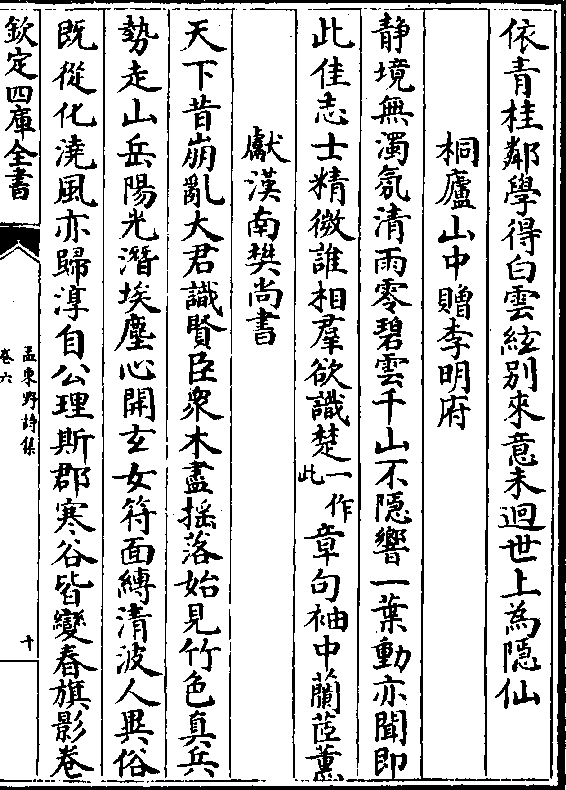 依青桂鄰學得白雲絃別來意未迴世上為隱仙
桐廬山中贈李明府
静境無濁氛清雨零碧雲千山不隱響一葉動亦聞即
此佳志士精微誰相羣欲識楚一作此章句袖中蘭茝薰
獻漢南樊尚書
天下昔崩亂大君識賢臣衆木盡搖落始見竹色真兵
勢走山岳陽光潛埃塵心開玄女符面縛清波人異俗
既從化澆風亦歸淳自公理斯郡寒谷皆變春旗影卷
欽定四庫全書
孟東野詩集
卷六
十